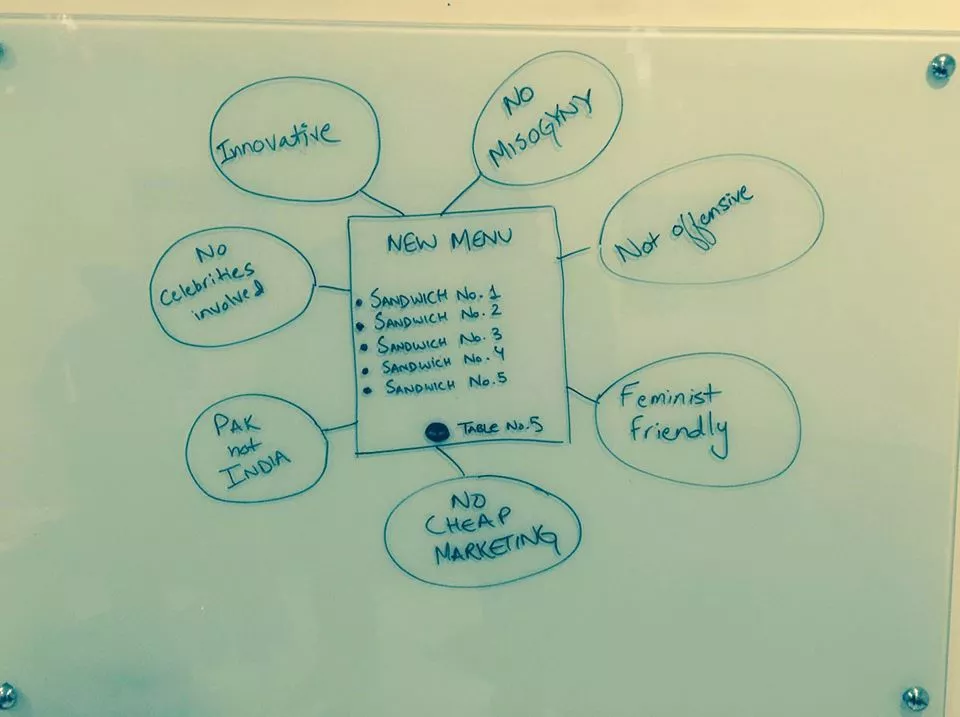 Innovative
NO
MISOGYNY
Not offensive
No
Celebrities
involved
NEW MENU
• SANDWICH No. 1
• SANDWICH No. 2
• SANDWICH No. 3
• SANDWICH No. 4
• SANDWICH No. 5
TABLE No. 5
Feminist
friendly
PAK
not
INDIA
NO
CHEAP
MARKETING